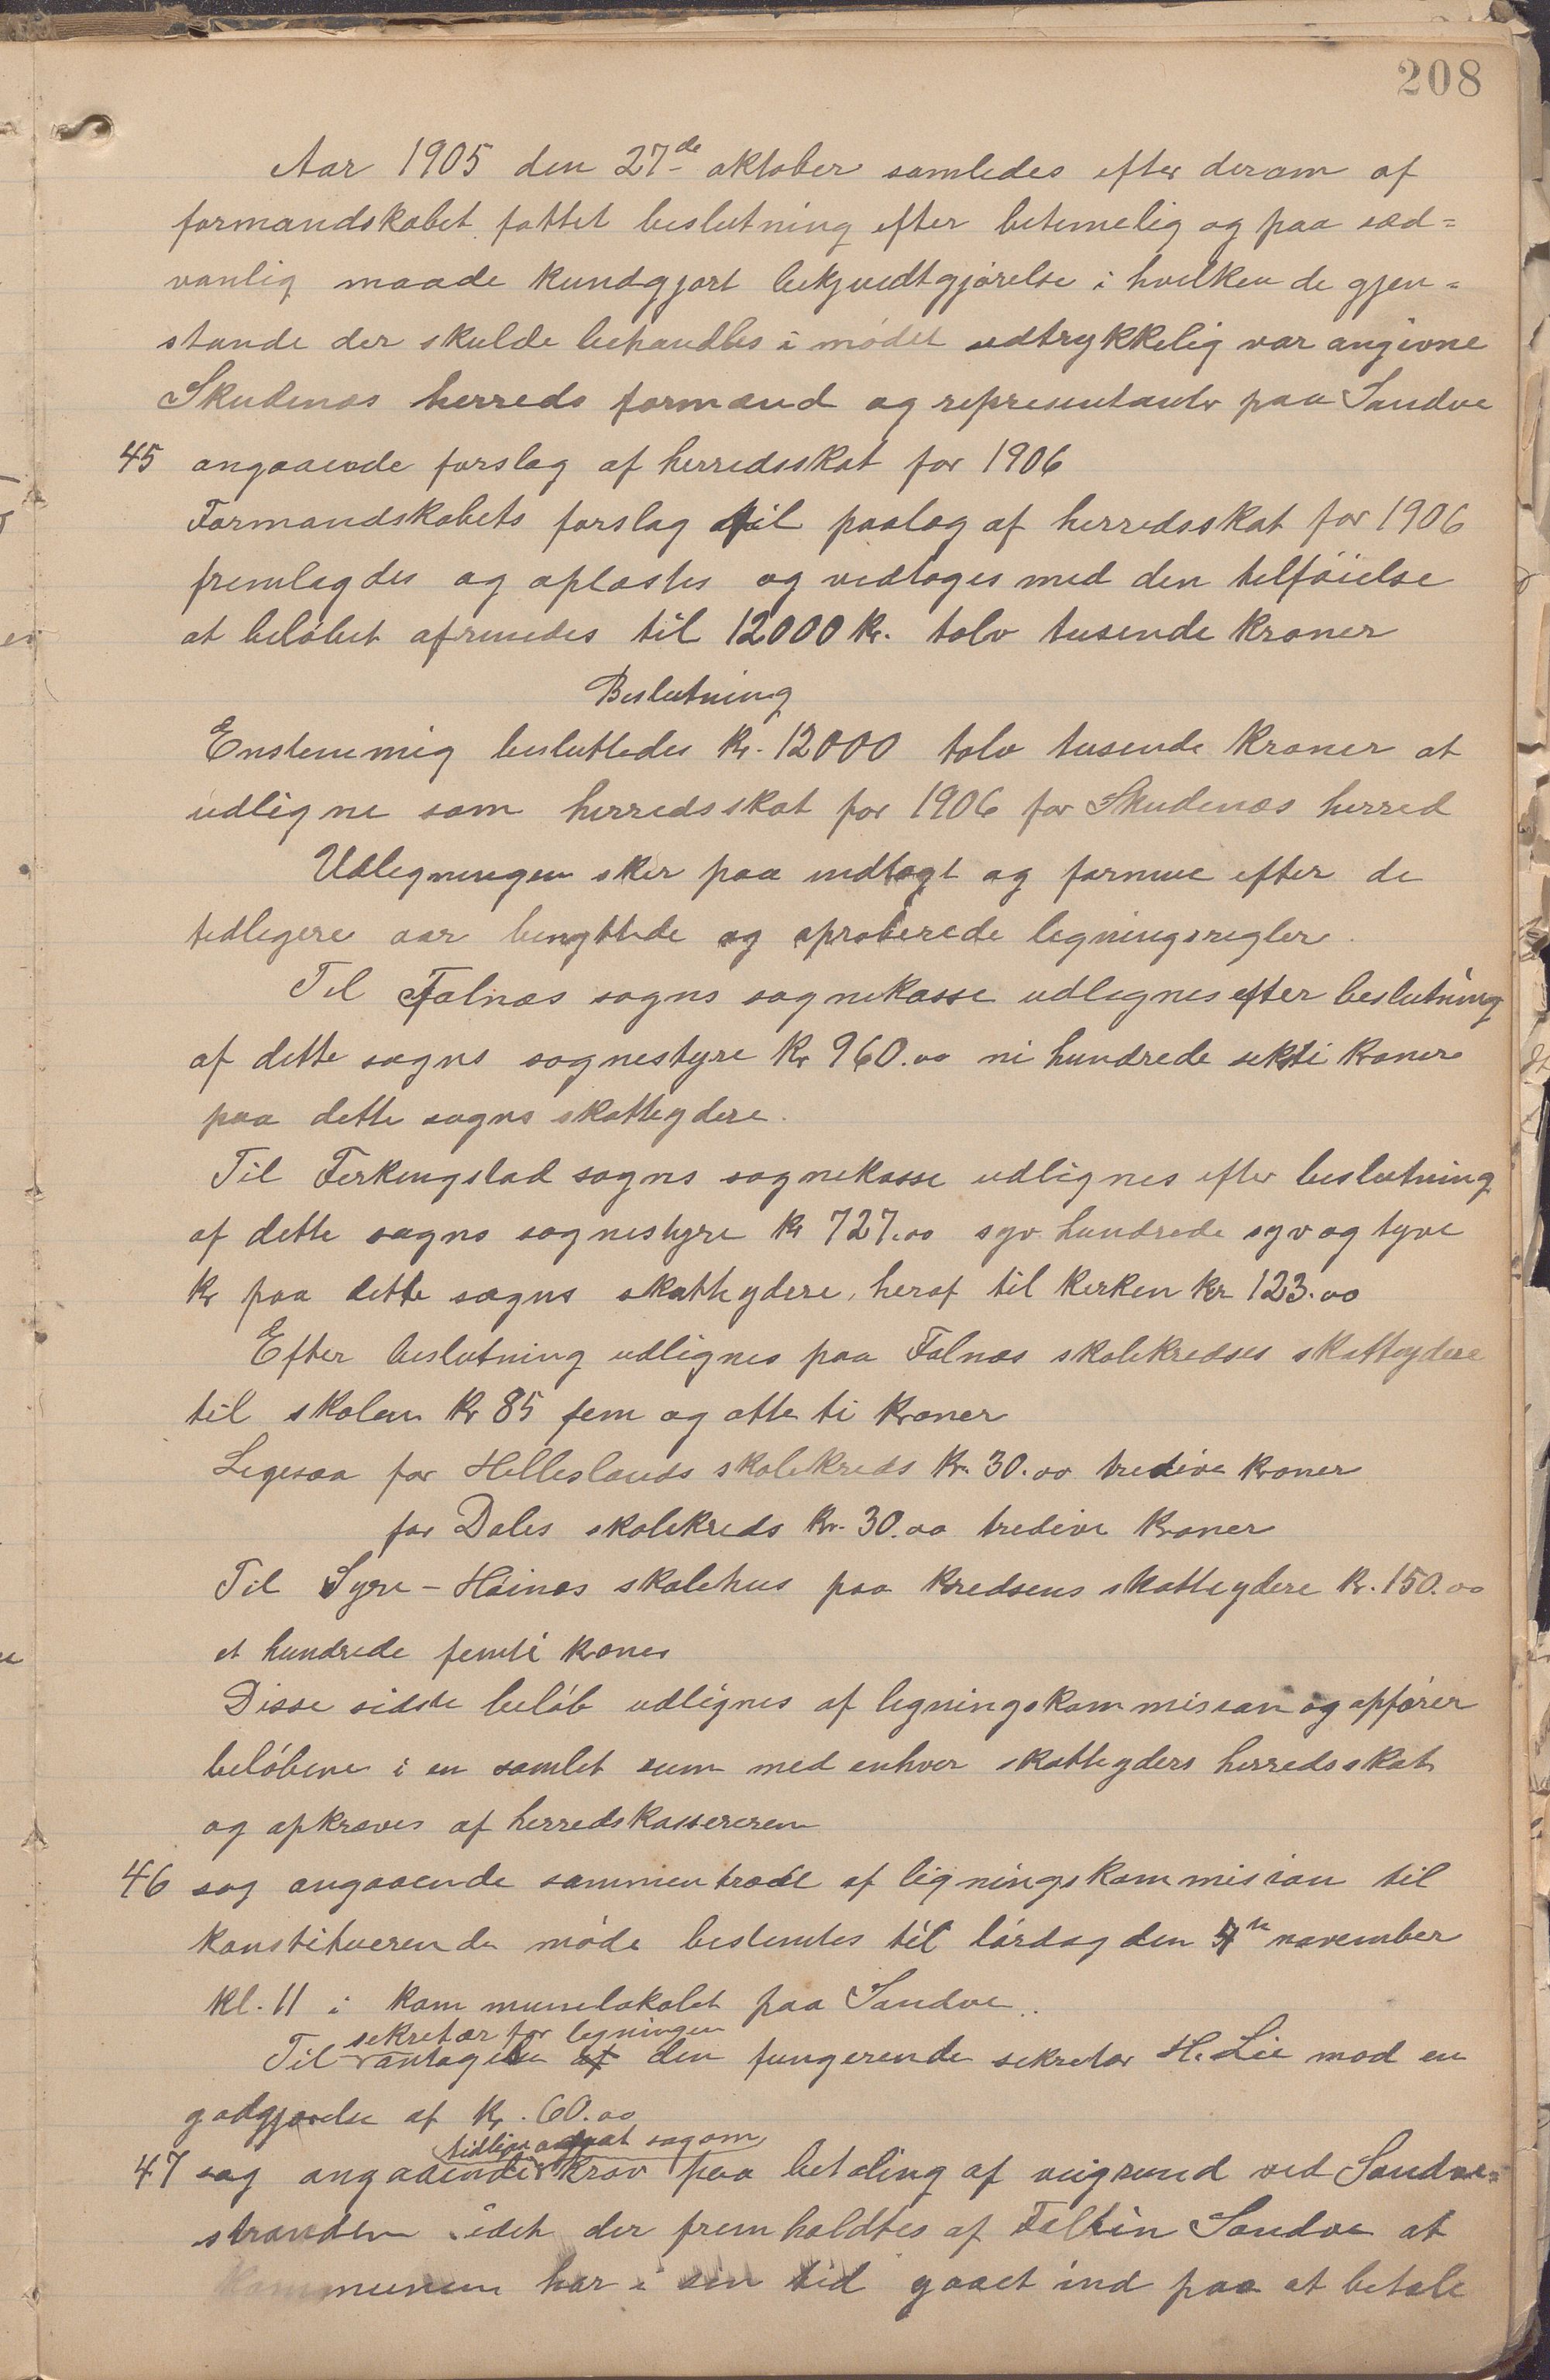 208
Aar 1905 den 27de oktober samledes efter derom af
formandskabet fattet beslutning efter betimelig og paa sæd=
vanlig maade kundgjort bekjendtgjørelse i hvilken de gjen=
stande der skulde behandles i mødet udtrykkelig var angivne
Skudenæs herreds formænd og representanter paa Sandve
45 angaaende forslag af herredsskat for 1906
Formandskabets forslag til paalæg af herredsskat for 1906
fremlagdes og oplæstes og vedtoges med den tilføielse
at beløbet afrundes til 12000 kr. tolv tusende kroner
Beslutning
Enstemmig besluttedes kr. 12000 tolv tusende kroner at
udligne som herredsskat for 1906 for Skudenæs herred
Udligningen sker paa indtægt og formue efter de
tidligere aar benyttede og aproberede ligningsregler.
Til Falnæs sogns sognekasse udlignes efter beslutning
af dette sogns sognestyre kr 960.00 ni hundrede seksti kroner
paa dette sogns skatteydere.
Til Ferkingstad sogns sognekasse udlignes efter beslutning
af dette sogns sognestyre kr 727.00 syv hundrede syv og tyve
kr paa dette sogns skatteydere, heraf til kirken kr 123.00
Efter beslutning udlignes paa Falnæs skolekredses skatteydere
til skolen kr 85 fem og otte ti kroner
Ligesaa for Hilleslands skolekreds kr. 30.00 tredive kroner
for Dales skolekreds kr. 30.00 tredive kroner
Til Syre-Høinæs skolehus paa kredsens skatteydere kr. 150.00
et hundrede femti kroner
Disse sidste beløb udlignes af ligningskommission og opfører
beløbene i en samlet sum med enhver skatteyders herredsskat
og opkræves af herredskassereren
46 sag angaaende sammentræde af ligningskommission til
konstituerende møde bestemtes til lørdag den 4de november
kl. 11 i kommunelokalet paa Sandve.
sekretær for ligningen
Til antages af den fungerende sekretær H. Lie mod en
godgjørelse af kr. 60.00
tidligere sag om
47 sag angaaende krav paa betaling af veigrund ved Sandve=
stranden idet der fremholdtes af Faltin Sandve at
kommunen har i sin tid gaaet ind paa at betale